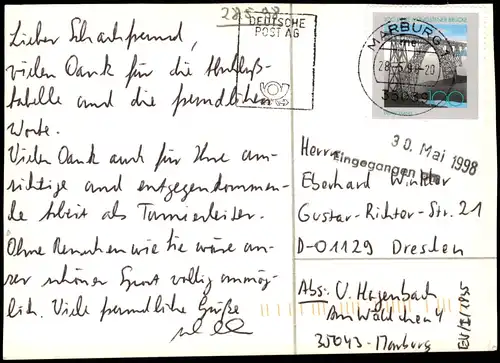 28.5.98
Lieber Schachfreund,
vielen Dank für die Abschluß-
tabelle und die freundlichen
Worte.
Vielen Dank auch für Ihre um-
sichtige und entgegenkommen-
de Arbeit als Turnierleiter.
Ohne Menschen wie Sie wäre un-
ser schöner Sport völlig unmög-
lich. Viele freundliche Grüße
DEUTSCHE
POST AG
MARBURG 1
28.5.98-20
35039
100
30. Mai 1998
Eingegangen am
Herrn
Eberhard Winkler
Gustav-Richter-Str. 21
D-01129 Dresden
Abs: U. Hagenbach
Am Wäldchen 4
35043-Marburg